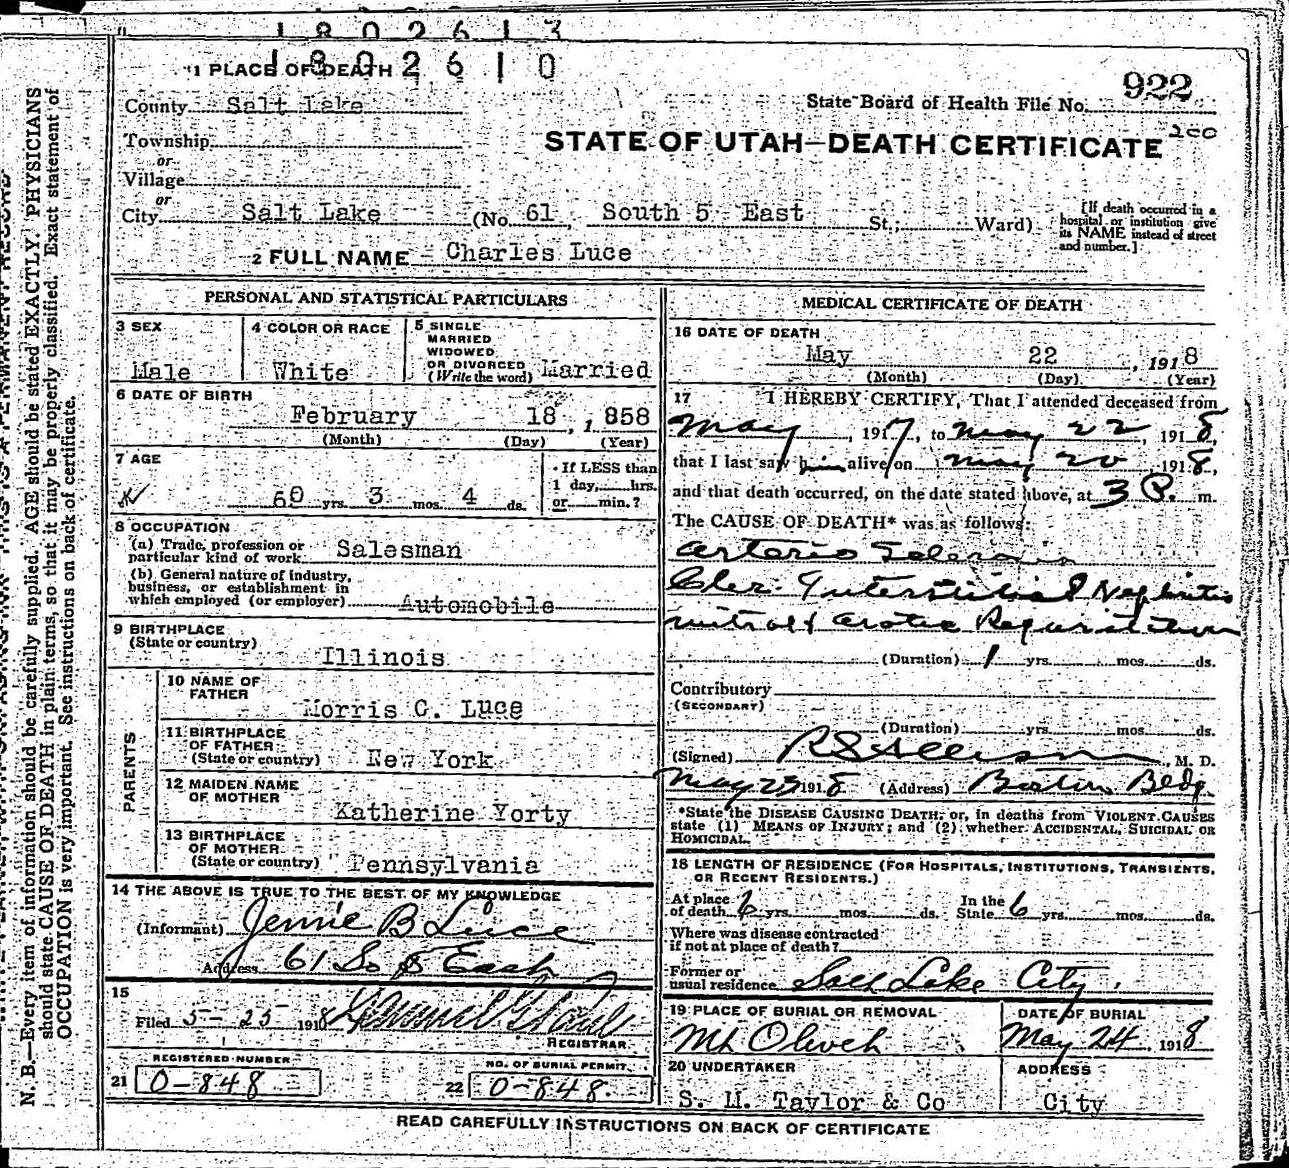 1 8 0 2 6 1 3
1 8 0 2 6 1 0
1 PLACE OF DEATH
922
County Salt Lake
State Board of Health File No.
200
Township
STATE OF UTAH—DEATH CERTIFICATE
or
Village
or
City Salt Lake (No. 61, South 5 East St.; Ward)
[If death occurred in a hospital or institution give its NAME instead of street and number.]
2 FULL NAME Charles Luce
PERSONAL AND STATISTICAL PARTICULARS
3 SEX
Male
4 COLOR OR RACE
White
5 SINGLE
MARRIED
WIDOWED
OR DIVORCED
(Write the word) Married
6 DATE OF BIRTH
February 18, 1858
(Month) (Day) (Year)
7 AGE
60 yrs. 3 mos. 4 ds.
If LESS than
1 day, hrs.
or min.?
8 OCCUPATION
(a) Trade, profession or
particular kind of work Salesman
(b) General nature of industry,
business, or establishment in
which employed (or employer) Automobile
9 BIRTHPLACE
(State or country)
Illinois
PARENTS
10 NAME OF
FATHER
Morris C. Luce
11 BIRTHPLACE
OF FATHER
(State or country) New York
12 MAIDEN NAME
OF MOTHER
Katherine Yorty
13 BIRTHPLACE
OF MOTHER
(State or country) Pennsylvania
14 THE ABOVE IS TRUE TO THE BEST OF MY KNOWLEDGE
(Informant) Jennie B Luce
Address 61 So 5 East
15
Filed 5-25-1918
REGISTRAR
REGISTERED NUMBER
21 0-848
NO. OF BURIAL PERMIT
22 0-848.
MEDICAL CERTIFICATE OF DEATH
16 DATE OF DEATH
May 22, 1918
(Month) (Day) (Year)
17 I HEREBY CERTIFY, That I attended deceased from
May, 1917, to May 22, 1918,
that I last saw him alive on May 20, 1918,
and that death occurred, on the date stated above, at 3 P. m.
The CAUSE OF DEATH* was as follows:
Arterio Sclerosis
Interstitial Nephritis
(Duration) 1 yrs. mos. ds.
Contributory
(SECONDARY)
(Duration) yrs. mos. ds.
(Signed) M. D.
May 1918 (Address) Boston Bldg.
*State the DISEASE CAUSING DEATH; or, in deaths from VIOLENT CAUSES
state (1) MEANS OF INJURY; and (2) whether ACCIDENTAL, SUICIDAL OR
HOMICIDAL.
18 LENGTH OF RESIDENCE (FOR HOSPITALS, INSTITUTIONS, TRANSIENTS,
OR RECENT RESIDENTS.)
At place
of death 6 yrs. mos. ds.
In the
State 6 yrs. mos. ds.
Where was disease contracted
if not at place of death?
Former or
usual residence Salt Lake City.
19 PLACE OF BURIAL OR REMOVAL
Mt Olivet
DATE OF BURIAL
May 24, 1918
20 UNDERTAKER
S. M. Taylor & Co
ADDRESS
City
READ CAREFULLY INSTRUCTIONS ON BACK OF CERTIFICATE
N. B.—Every item of information should be carefully supplied. AGE should be stated EXACTLY. PHYSICIANS
should state CAUSE OF DEATH in plain terms, so that it may be properly classified. Exact statement of
OCCUPATION is very important. See instructions on back of certificate.